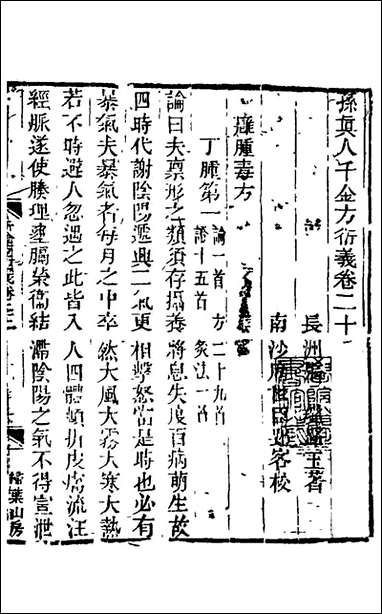 孫真人千金方衍義卷二十
長洲張璐路玉著
南沙席世臣郢客校
癰腫毒方
丁腫第一論一首 方二十九首
證十五首 灸法一首
論曰夫禀形之類須存攝養將息失度百病萌生故
四時代謝陰陽遞興二氣更相擊怒當是時也必有
暴氣夫暴氣者每月之中卒然大風大霧大寒大熱
若不時避人忽遇之此皆入人四體頓折皮膚流注
經脈遂使腠理壅膈榮衞結滯陰陽之氣不得宣泄
掃葉山房